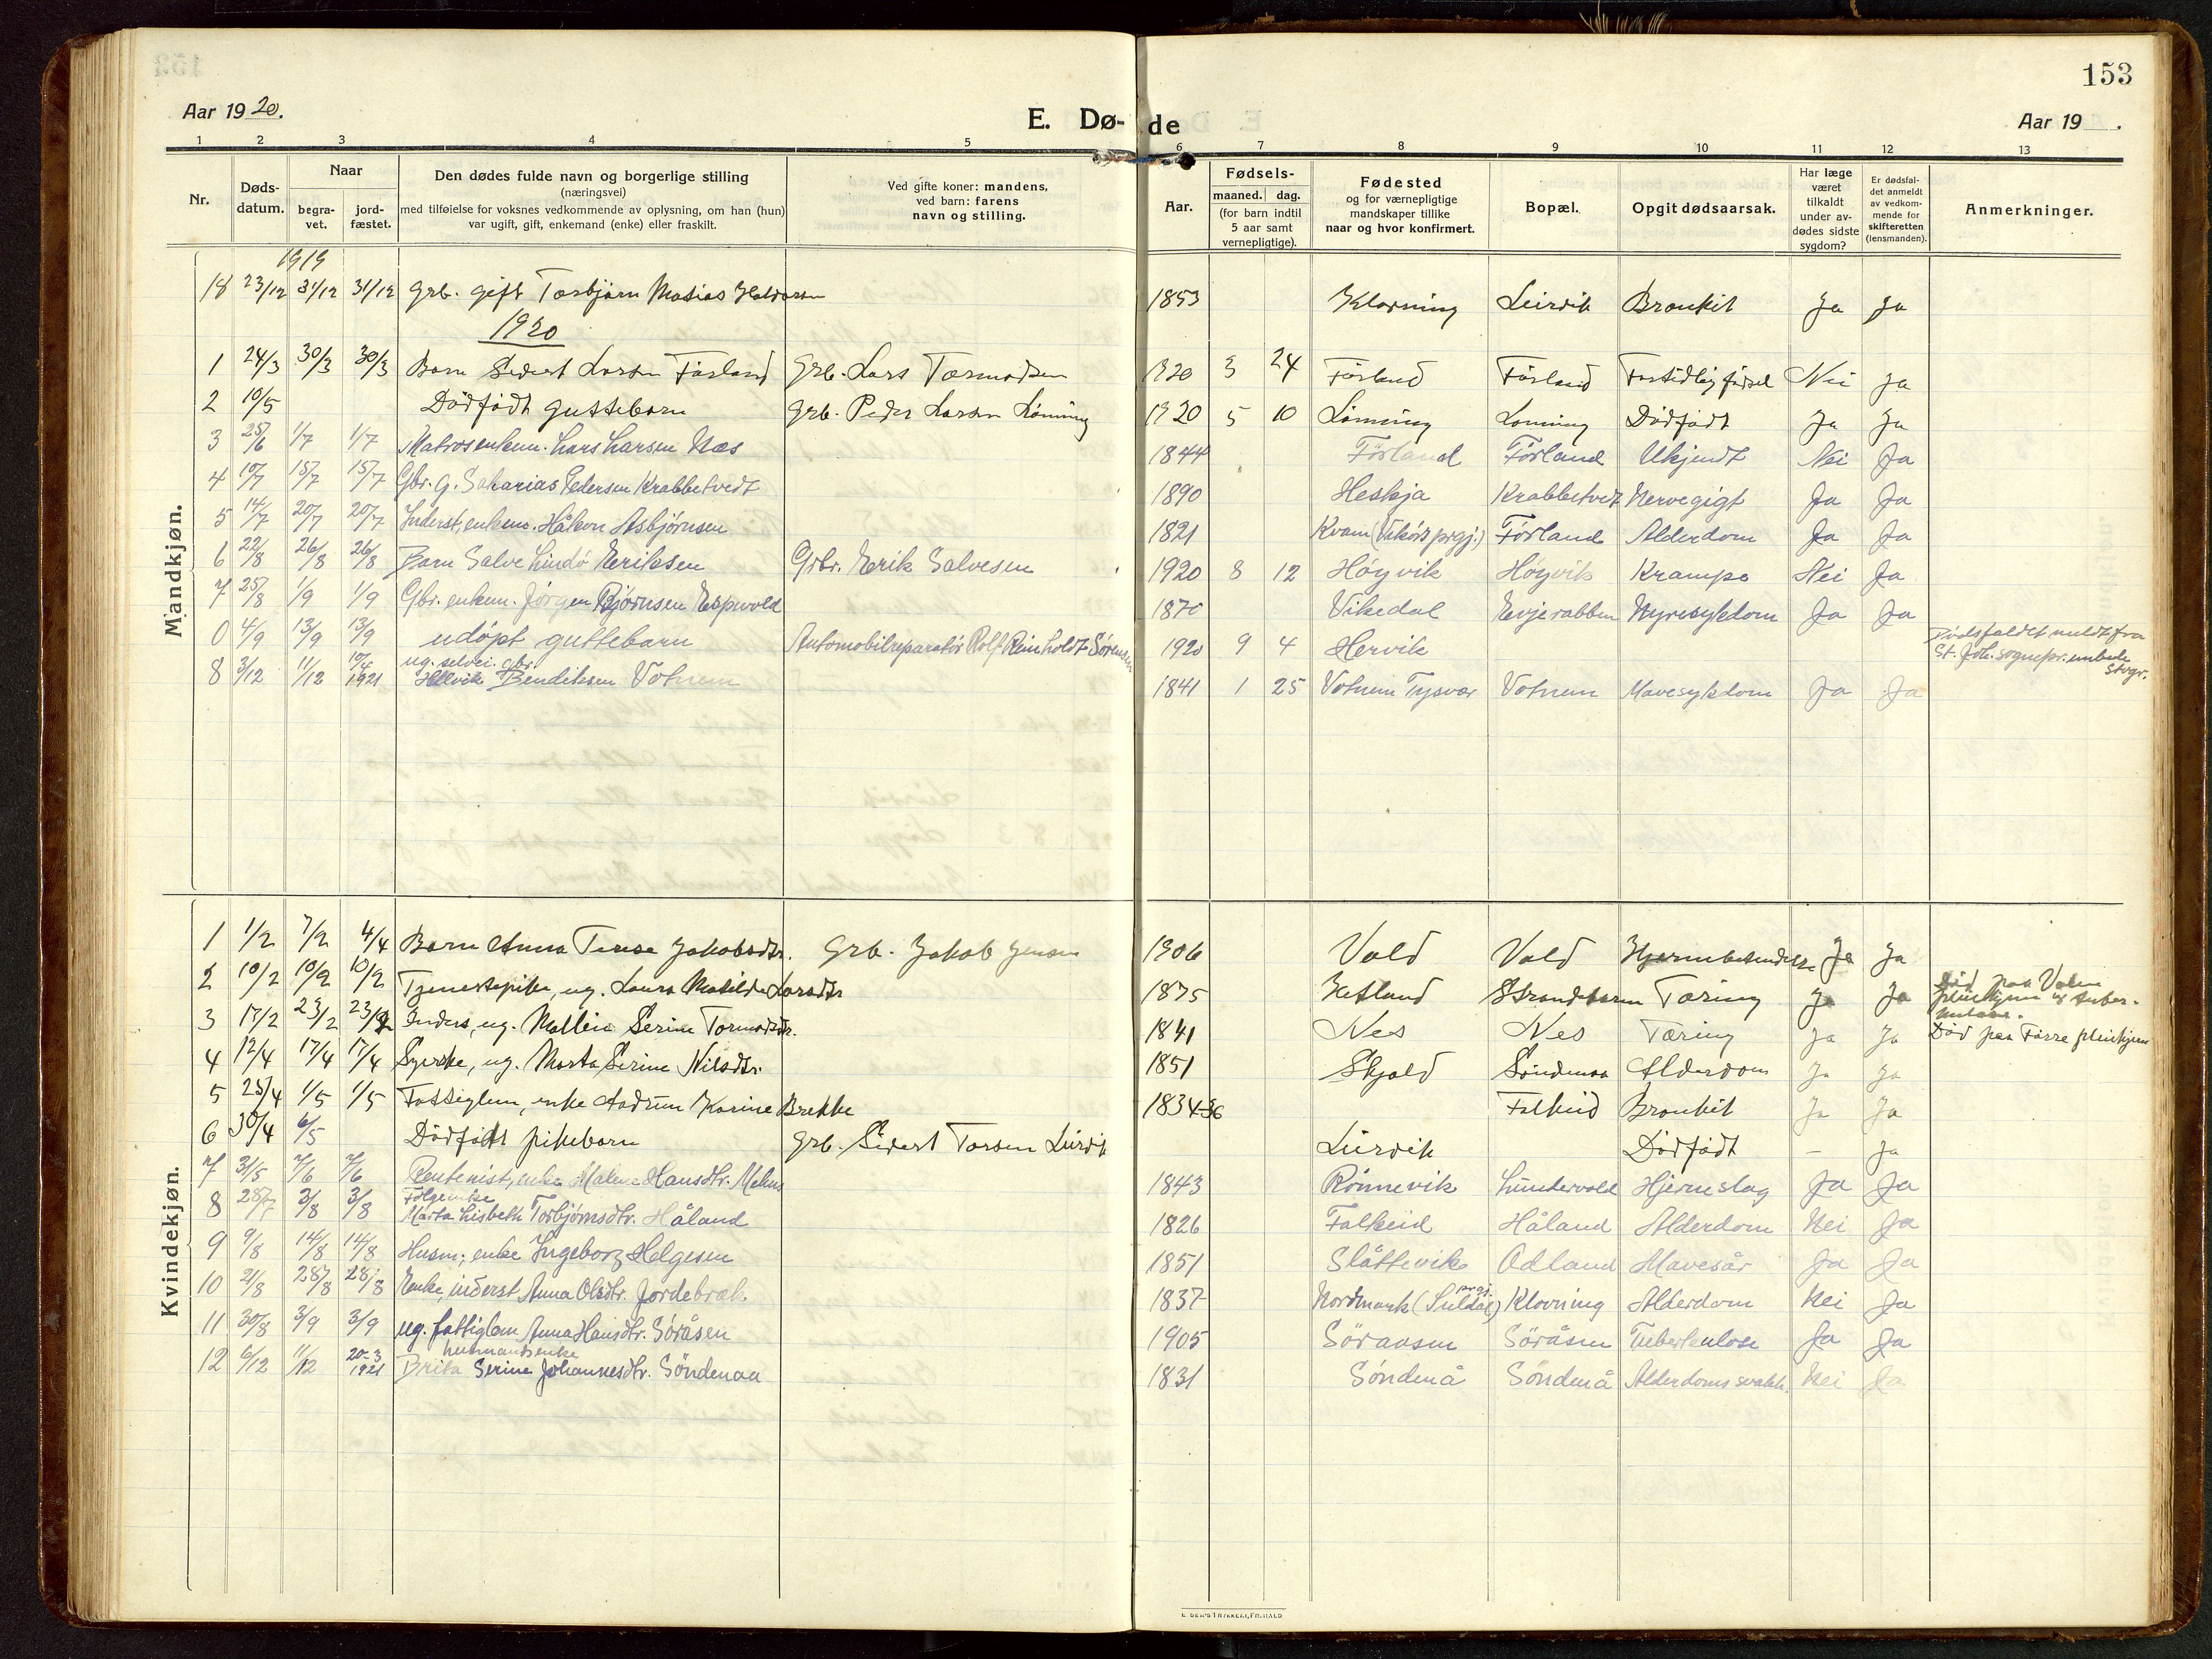 153
Aar 1920.
E. Dø- de
Aar 19 .
1 2 3 4 5 6 7 8 9 10 11 12 13
Nr.
Døds-datum.
Naar
begra-vet.
jord-fæstet.
Den dødes fulde navn og borgerlige stilling
(næringsvei)
med tilføielse for voksnes vedkommende av oplysning, om han (hun)
var ugift, gift, enkemand (enke) eller fraskilt.
Ved gifte koner: mandens,
ved barn: farens
navn og stilling.
Aar.
Fødsels-
maaned. dag.
(for barn indtil
5 aar samt
vernepligtige).
Fødested
og for værnepligtige
mandskaper tillike
naar og hvor konfirmert.
Bopæl.
Opgit dødsaarsak.
Har læge
været
tilkaldt
under av-
dødes sidste
sygdom?
Er dødsfal-
det anmeldt
av vedkom-
mende for
skifteretten
(lensmanden).
Anmerkninger.
Mandkjøn.
1919
18 23/12 31/12 31/12 Grb. gift Torbjørn Matias Haldorsen 1853 Klovning Leirvik Bronkit Ja Ja
1920
1 24/3 30/3 30/3 Barn Sivert Larsen Førland Grb. Lars Tormodsen 1920 3 24 Førland Førland Fortidlig fødsel Nei Ja
2 10/5 Dødfødt guttebarn Grb. Peder Larsen Lønning 1920 5 10 Lønning Lønning Dødfødt Ja Ja
3 25/6 1/7 1/7 Matros enkem. Lars Larsen Næs 1844 Førland Førland Ukjendt Nei Ja
4 10/7 15/7 15/7 Gbr. g. Sakarias Pedersen Krabbetvedt 1890 Heskja Krabbetvedt Nervegigt Ja Ja
5 14/7 20/7 20/7 Inderst, enkem. Håkon Asbjørnsen 1821 Kvam (Vikørs prgj.) Førland Alderdom Ja Ja
6 22/8 26/8 26/8 Barn Salve Lindø Eriksen Grbr. Erik Salvesen 1920 8 12 Høyvik Høyvik Krampe Nei Ja
7 25/8 1/9 1/9 Gbr. enkem. Jørgen Bjørnsen Espevold 1870 Vikedal Evjerabben Nyresykdom Ja Ja
0 4/9 13/9 13/9 udøpt guttebarn Automobilreparatør Rolf Reinholdt Sørensen 1920 9 4 Hervik Dødsfaldet meldt fra
St. Joh. sognepr. embede
Stvgr.
8 3/12 11/12 10/4 1921 ug. selvei. gbr.
Bendiksen Votnem 1841 1 25 Votnem Tysvær Votnem Mavesykdom Ja Ja
Kvindekjøn.
1 1/2 7/2 4/4 Barn Anna Terese Jakobsdtr. Grb. Jakob Jensen 1906 Vold Vold Ja Ja
2 10/2 10/2 10/2 Tjenestepike, ug. Laura Matilde Larsdtr 1875 Hetland Strandebarm Tæring Ja Ja Død paa Valen
pleiehjem
3 17/2 23/2 23/2 Inders, ug. Mallein Serine Tormodsdtr. 1841 Nes Nes Tæring Ja Ja Død paa Førre pleiehjem
4 12/4 17/4 17/4 Syerske, ug. Marta Serine Nilsdtr. 1851 Skjold Søndenaa Alderdom Ja Ja
5 25/4 1/5 1/5 Fattiglem, enke Karine Brekke 1834-36 Falkeid Bronkit Ja Ja
6 30/4 6/5 Dødfødt pikebarn Grb. Sivert Torsen Leirvik Leirvik Dødfødt – Ja
7 31/5 7/6 7/6 Rentenist, enke Malene Hansdtr. Mehus 1843 Rønnevik Lundervold Hjerneslag Ja Ja
8 28/7 3/8 3/8 Følgeenke
Marta Lisbeth Torbjørnsdtr. Håland 1826 Falkeid Håland Alderdom Nei Ja
9 9/8 14/8 14/8 Husm; enke Ingeborg Helgesen 1851 Slåttevik Odland Mavesår Ja Ja
10 21/8 28/8 28/8 Enke, inderst Anna Olsdtr. Jordebræk 1837 Nordmark (Suldal prgj.) Klovning Alderdom Nei Ja
11 30/8 3/9 3/9 ug. fattiglem Anna Hansdtr. Søråsen 1905 Søraasen Søråsen Tuberkulose Ja Ja
12 6/12 11/12 20-3 1921 husmandsenke
Brita Serine Johannesdtr. Söndenaa 1831 Söndenå Söndenå Alderdoms svakh. Nei Ja